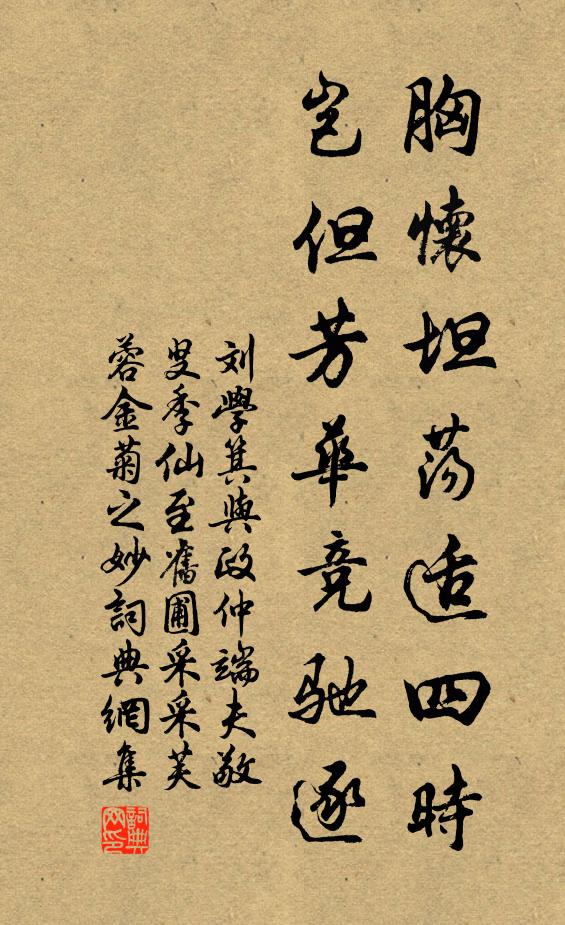 胸懷坦荡适四時
岂但芳華竞馳逐
刘學箕與政仲端夫敬
叟季仙至舊圃采采芙
蓉金菊之妙詞典網集
詞典网印